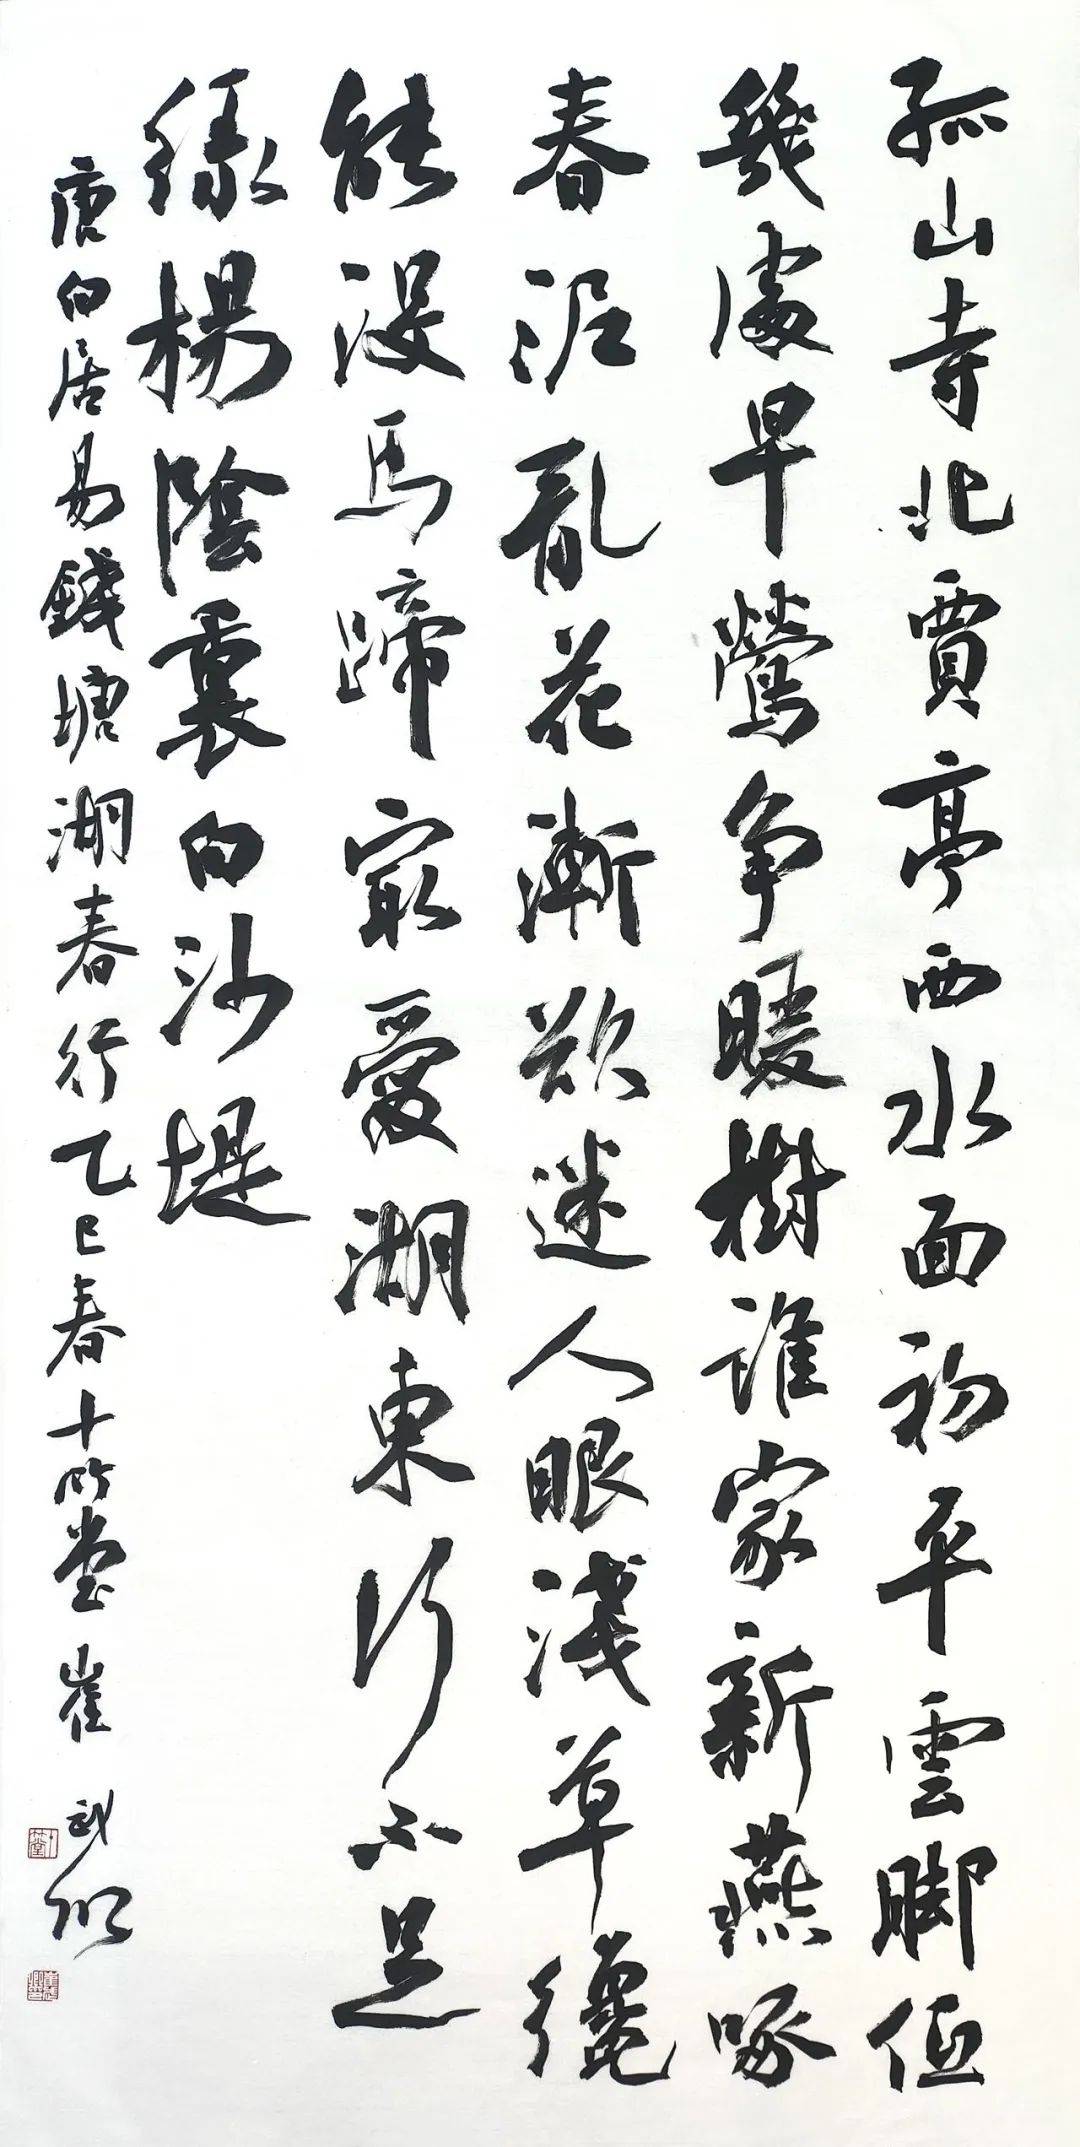 孤山寺北賈亭西水面初平雲腳低
幾處早鶯爭暖樹誰家新燕啄
春泥亂花漸欲迷人眼淺草纔
能沒馬蹄最愛湖東行不足
綠楊陰裏白沙堤
唐白居易錢塘湖春行乙巳春十竹堂崔武